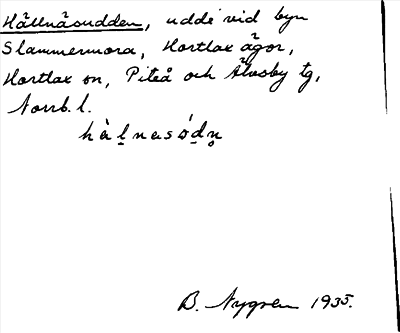 Hällnäsudden, udde vid byn
Slammermora, Hortlax ägor,
Hortlax sn, Piteå och Älvsby tg,
Norrb. l.
hälnasódn̥
B. Nygren 1935.